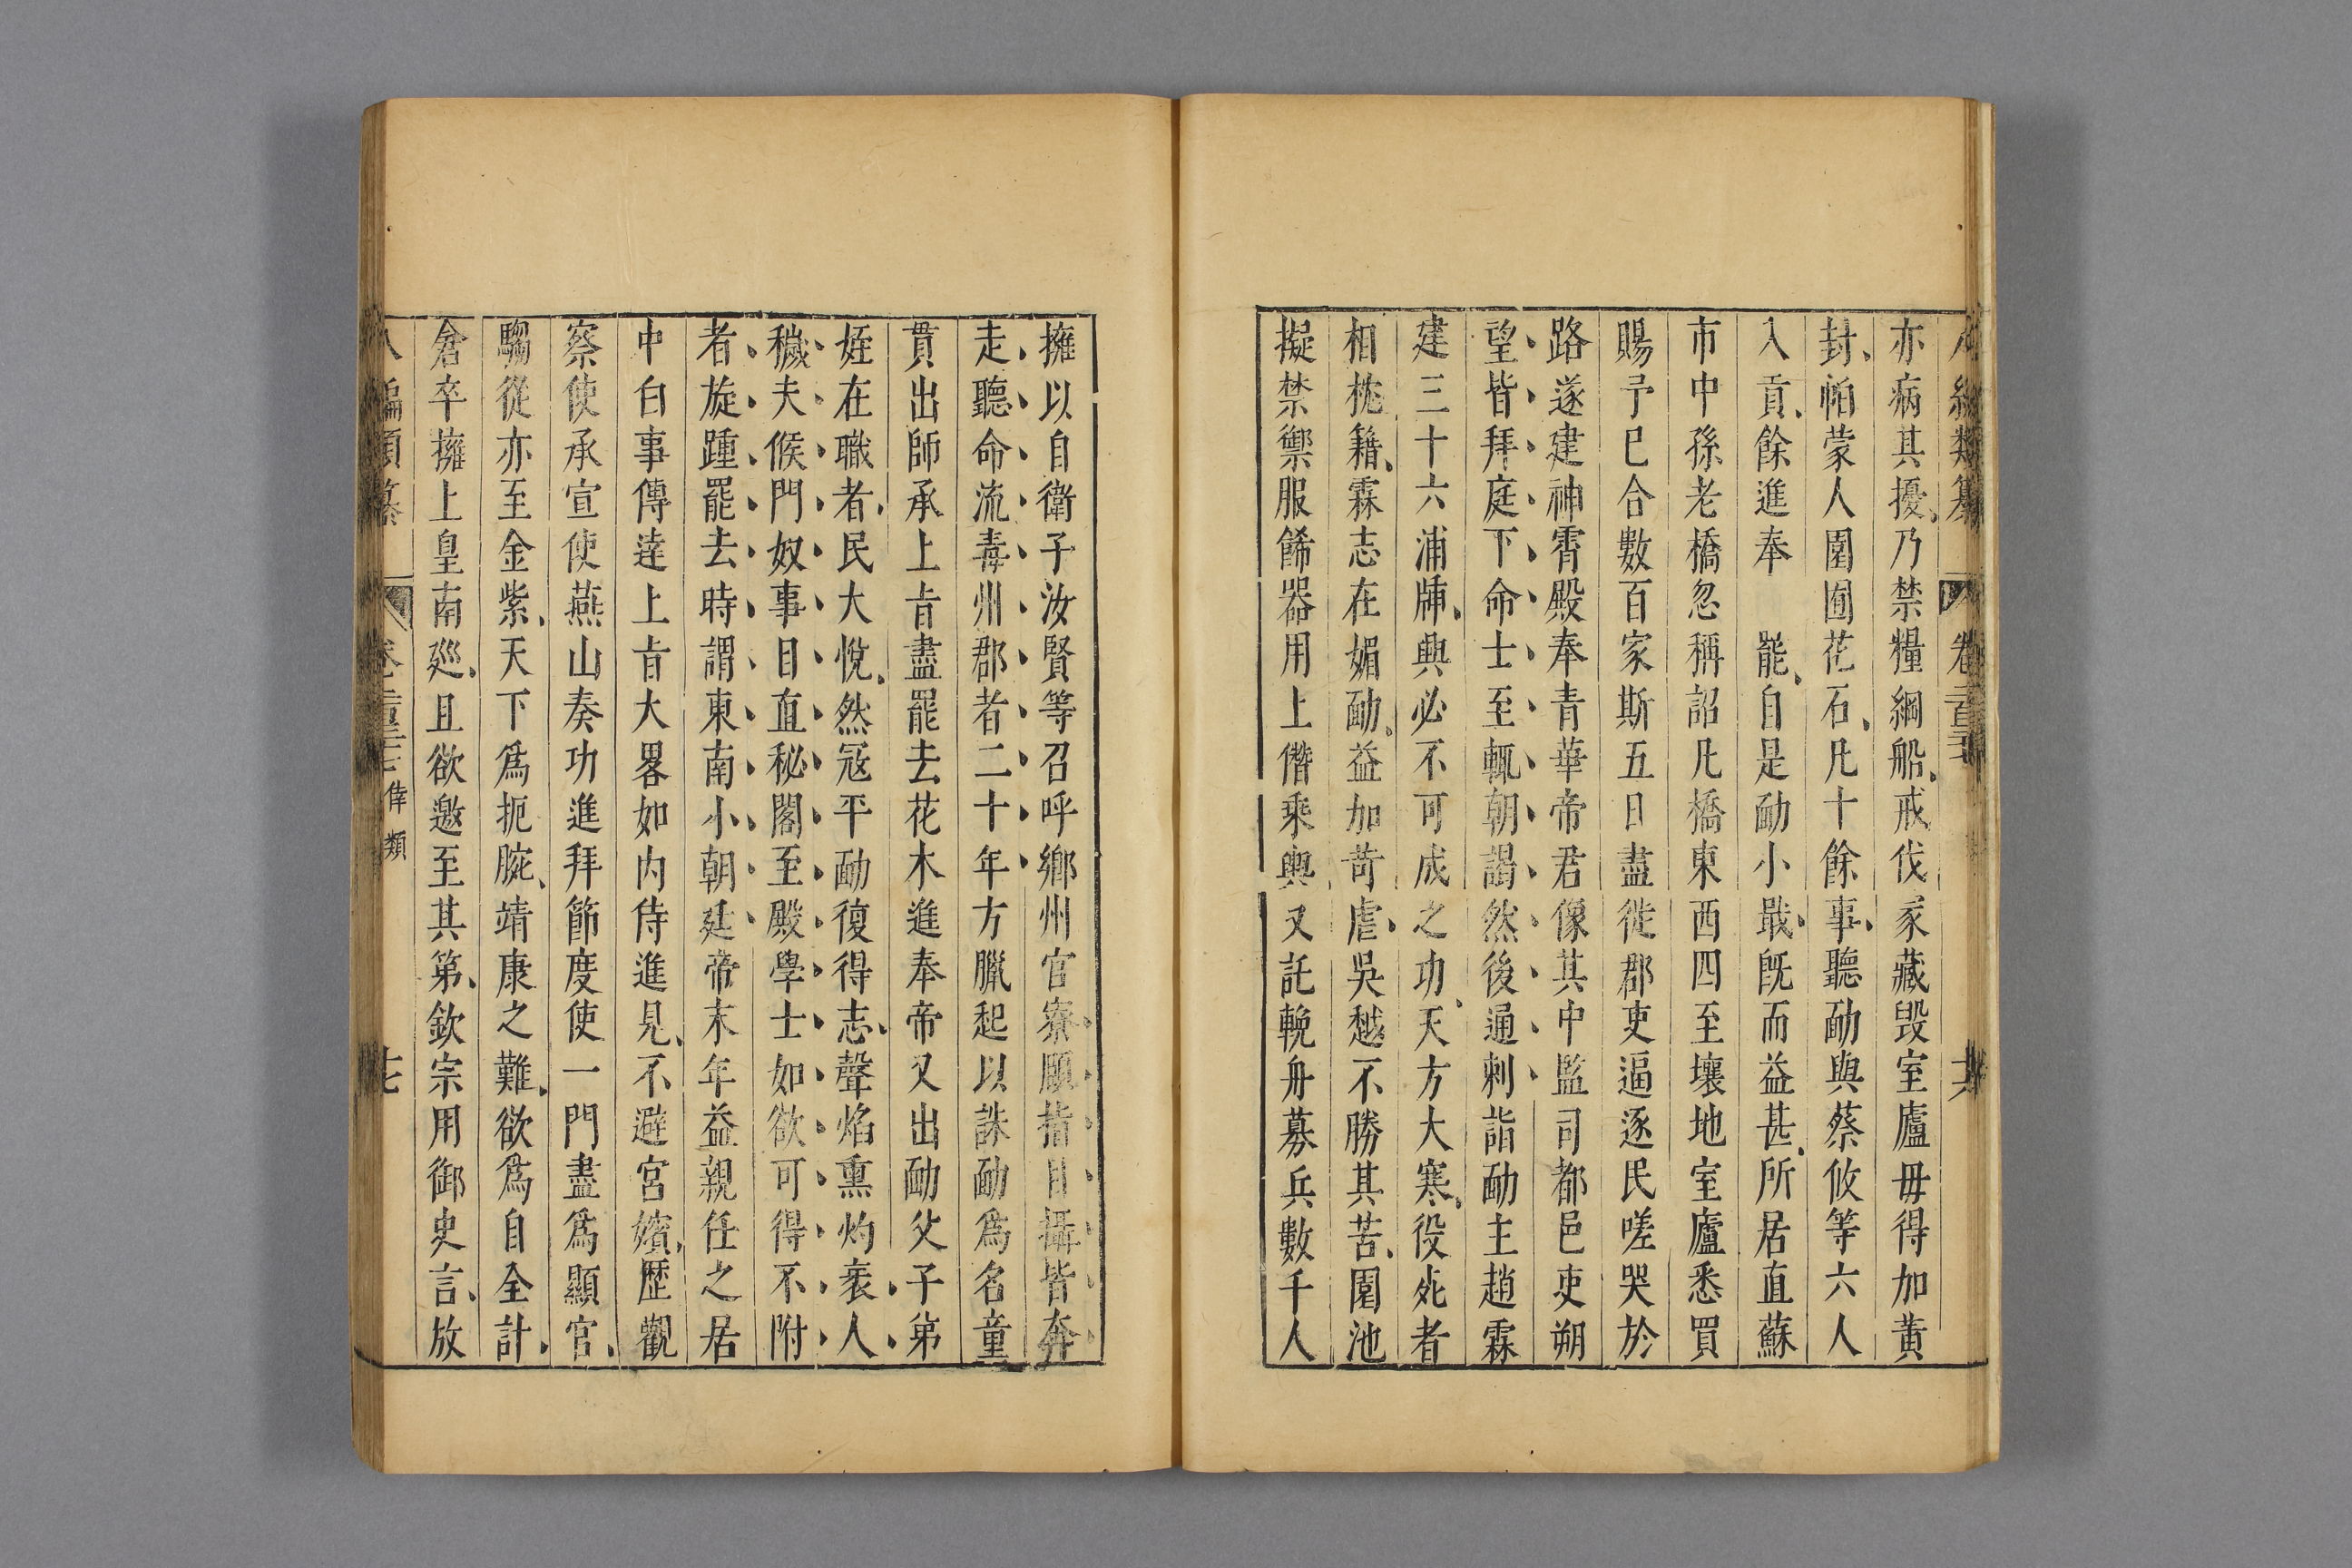 八編類纂 卷二百三十 十六
亦病其擾乃禁糧綱船戒伐冢藏毀室廬毋得加黃
封帕蒙人園囿花石凡十餘事聽勔與蔡攸等六人
入貢餘進奉 罷自是勔小戢既而益甚所居直蘇
市中孫老橋忽稱詔凡橋東西四至壤地室廬悉買
賜予已合數百家斯五日盡徙郡吏逼逐民嗟哭於
路遂建神霄殿奉青華帝君像其中監司都邑吏朔
望皆拜庭下命士至輒朝謁然後通刺詣勔主趙霖
建三十六浦牐興必不可成之功天方大寒役死者
相枕籍霖志在媚勔益加苛虐吳越不勝其苦園池
擬禁禦服飾器用上僭乘輿又託輓舟募兵數千人
擁以自衛子汝賢等召呼鄉州官寮頤指目攝皆奔
走聽命流毒州郡者二十年方臘起以誅勔爲名童
貫出師承上旨盡罷去花木進奉帝又出勔父子弟
姪在職者民大悅然冦平勔復得志聲焰熏灼衺人
穢夫候門奴事自直秘閣至殿學士如欲可得不附
者旋踵罷去時謂東南小朝廷帝末年益親任之居
中白事傳達上旨大畧如內侍進見不避宮嬪歷觀
察使承宣使燕山奏功進拜節度使一門盡爲顯官
騶從亦至金紫天下爲扼腕靖康之難欲爲自全計
倉卒擁上皇南廵且欲邀至其第欽宗用御史言放
八編類纂 卷二百三十 倖類 十七